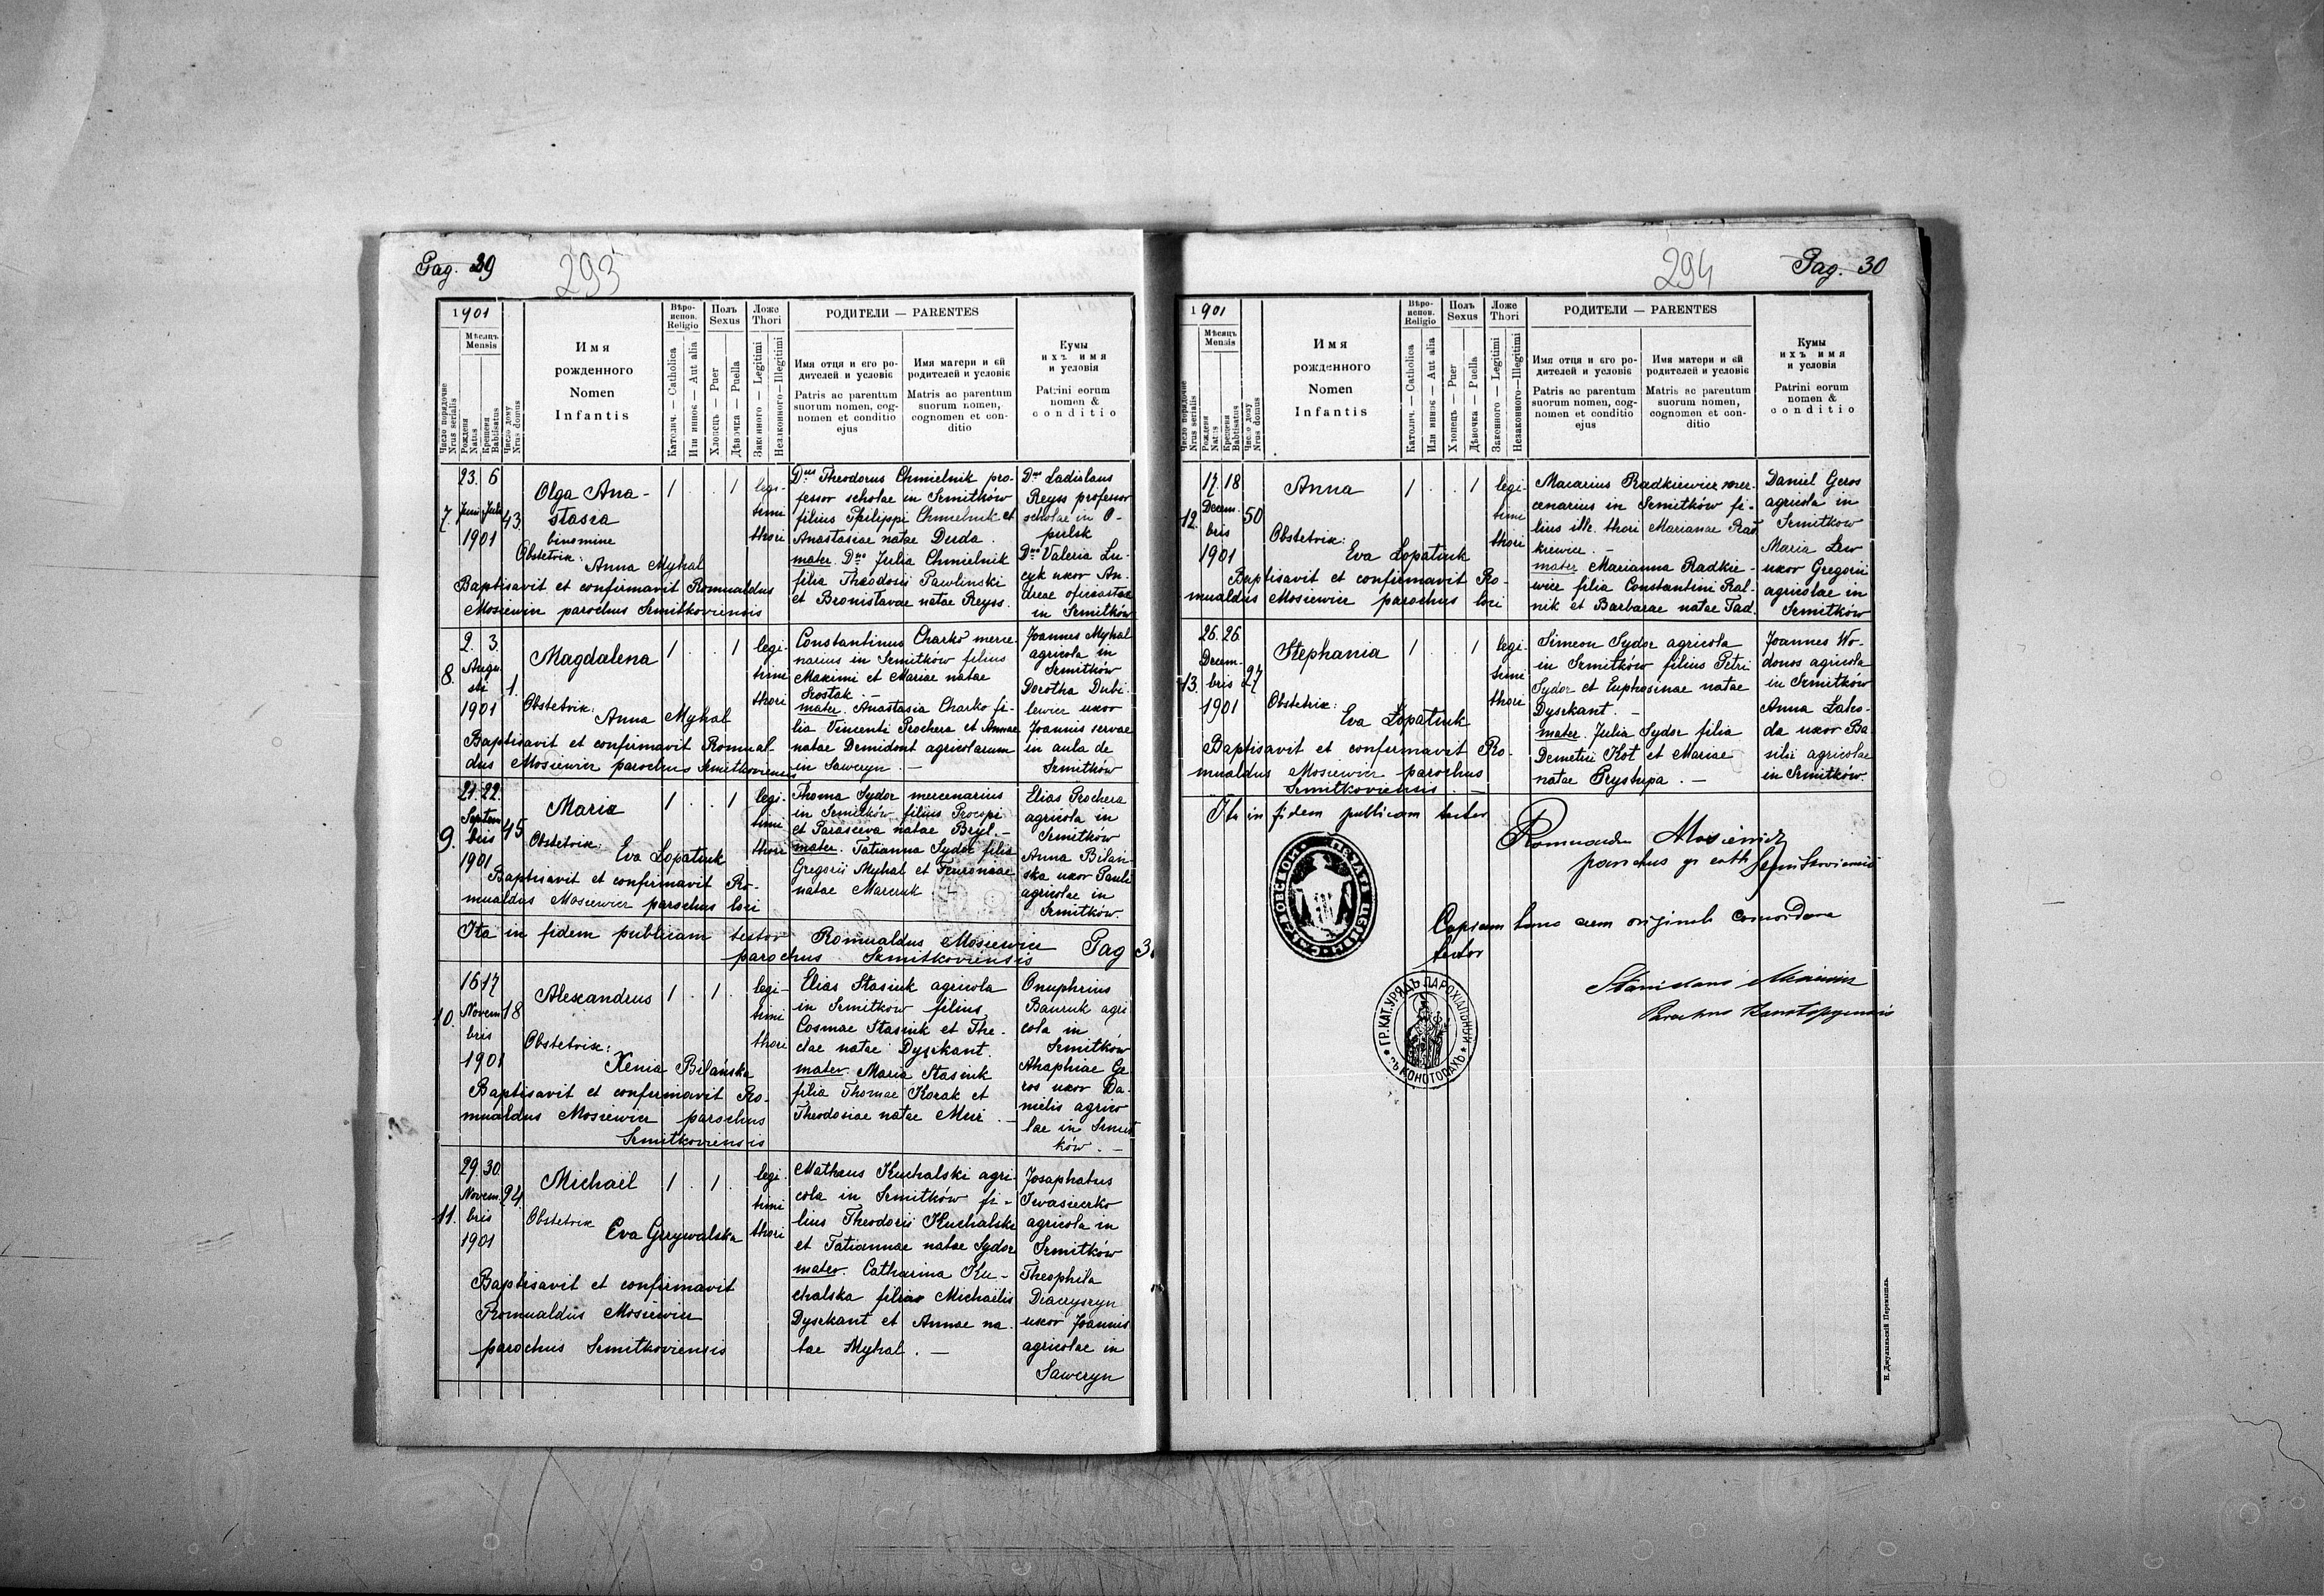 Pag. 29
293
1901
Мѣсяць
Mensis
Число порядочне
Nrus serialis
Рожденя
Natus
Крещеня
Babtisatus
Число дому
Nrus domus
Имя
рожденного
Nomen
Infantis
Вѣро-
испов.
Religio
Католич. — Catholica
Или инноє — Aut alia
Полъ
Sexus
Хлопець — Puer
Дѣвочка — Puella
Ложе
Thori
Законного — Legitimi
Незаконного — Illegitimi
РОДИТЕЛИ — PARENTES
Имя отця и єго ро-
дителей и условіє
Patris ac parentum
suorum nomen, cog-
nomen et conditio
ejus
Имя матери и єй
родителей и условіє
Matris ac parentum
suorum nomen,
cognomen et con-
ditio
Кумы
ихъ имя
и условія
Patrini eorum
nomen &
conditio
7.
23. 6
Juni Julii
1901
43
Olga Ana-
stasia
binomine
Obstetrix:
Anna Myhal
Baptisavit et confirmavit Romualdus
Mosiewicz parochus Szmitkoviensis
1 . . 1
legi-
timi
thori
Dnus Theodorus Chmielnik pro-
fessor scholae in Szmitków
filius Philippi Chmielnik et
Anastasiae natae Duda.
mater. Dna Julia Chmielnik
filia Theodosii Pawlinski
et Bronislavae natae Reyss.
Dnus Ladislaus
Reyss professor
scholae in O-
pulsk
Dna Valeria Lu-
cyk uxor An-
dreae
in Szmitków
8.
2. 3.
Augu-
sti
1901
1.
Magdalena
Obstetrix:
Anna Myhal
Baptisavit et confirmavit Romual-
dus Mosiewicz parochus Szmitkoviensis
1 . . 1
legi-
timi
thori
Constantinus Charko merce-
narius in Szmitków filius
Maximi et Mariae natae
Szostak. —
mater. Anastasia Charko fi-
lia Vincenti Prochera et Annae
natae Demidont agricolarum
in Saweryn. —
Joannes Myhal
agricola in
Szmitków
Dorotha Dubi-
lewicz uxor
Joannis servae
in aula de
Szmitków
9.
21. 22.
Septem
bris
1901
45
Maria
Obstetrix:
Eva Lopatiuk
Baptisavit et confirmavit Ro-
mualdus Mosiewicz parochus loci
1 . . 1
legi-
timi
thori
Thoma Sydor mercenarius
in Szmitków filius Procopi
et Parasceva natae Bryl. —
mater. Tatianna Sydor filia
Gregorii Myhal et Feuroniae
natae Marczuk
Elias Prochera
agricola in
Szmitków
Anna Bilan-
ska uxor Pauli
agricolae in
Szmitków.
Ita in fidem publicam testor Romualdus Mosiewicz
parochus Szmitkoviensis
Pag 3
10.
16 17
Novem
bris
1901
18
Alexandrus
Obstetrix:
Xenia Bilańska
Baptisavit et confirmavit Ro-
mualdus Mosiewicz parochus
Szmitkoviensis
1 . 1 .
legi-
timi
thori
Elias Stasiuk agricola
in Szmitków filius
Cosmae Stasiuk et The-
clae natae Dyszkant.
mater. Maria Stasiuk
filia Thomae Korak et
Theodosiae natae —
Onuphrius
Bauruk agri
cola in
Szmitków
Ahaphiae Ge-
ros uxor Da-
nielis agrico
lae in Szmit
ków. —
11.
29. 30.
Novem.
bris
1901
94.
Michaël
Obstetrix
Eva Grzywalska
Baptisavit et confirmavit
Romualdus Mosiewicz
parochus Szmitkoviensis
1 . 1 .
legi-
timi
thori
Mathaus Kuchalski agri-
cola in Szmitków fi-
lius Theodorii Kuchalski
et Tatiannae natae Sydor
mater. Catharina Ku-
chalska filia Michaëlis
Dyszkant et Annae na-
tae Myhal. —
Josaphatus
Iwasieczko
agricola in
Szmitków
Theophila
Diaczyszyn
uxor Joannis
agricolae in
Saweryn
294
Pag. 30
1901
Мѣсяць
Mensis
Число порядочне
Nrus serialis
Рожденя
Natus
Крещеня
Babtisatus
Число дому
Nrus domus
Имя
рожденного
Nomen
Infantis
Вѣро-
испов.
Religio
Католич. — Catholica
Или инноє — Aut alia
Полъ
Sexus
Хлопець — Puer
Дѣвочка — Puella
Ложе
Thori
Законного — Legitimi
Незаконного — Illegitimi
РОДИТЕЛИ — PARENTES
Имя отця и єго ро-
дителей и условіє
Patris ac parentum
suorum nomen, cog-
nomen et conditio
ejus
Имя матери и єй
родителей и условіє
Matris ac parentum
suorum nomen,
cognomen et con-
ditio
Кумы
ихъ имя
и условія
Patrini eorum
nomen &
conditio
12.
17. 18
Decem-
bris
1901
50
Anna
Obstetrix:
Eva Lopatiuk
Baptisavit et confirmavit Ro-
mualdus Mosiewicz parochus loci
1 . . 1
legi-
timi
thori
Macarius Radkiewicz mer-
cenarius in Szmitków fi-
lius ille. thori Marianae Rad
kiewicz. —
mater Marianna Radkie-
wicz filia Constantini Ral-
nik et Barbarae natae Tad.
Daniel Geros
agricola in
Szmitkow
Maria Lew
uxor Gregorii
agricolae in
Szmitków
13.
26. 26.
Decem-
bris
1901
27
Stephania
Obstetrix:
Eva Lopatiuk
Baptisavit et confirmavit Ro-
mualdus Mosiewicz parochus
Szmitkoviensis. —
1 . . 1
legi-
timi
thori
Simeon Sydor agricola
in Szmitków filius Petri
Sydor et Euphrosinae natae
Dyszkant. —
mater. Julia Sydor filia
Demetrii Kot et Mariae
natae Prystupa. —
Joannes Wo-
donos agricola
in Szmitków
Anna Laho-
da uxor Ba-
silii agricolae
in Szmitków.
Ita in fidem publicam testor
Romuald Mosiewicz
parochus gr cath Szmitkoviensis
Copiam hanc cum originale concordare
testor
ГР.КАТ.УРЯДЪ ПАРОХІАЛЬНИЙ ВЪ КОНОТОПАХЪ
Parochus Konotopyensis
Н. Джулиньскій Перемышль.